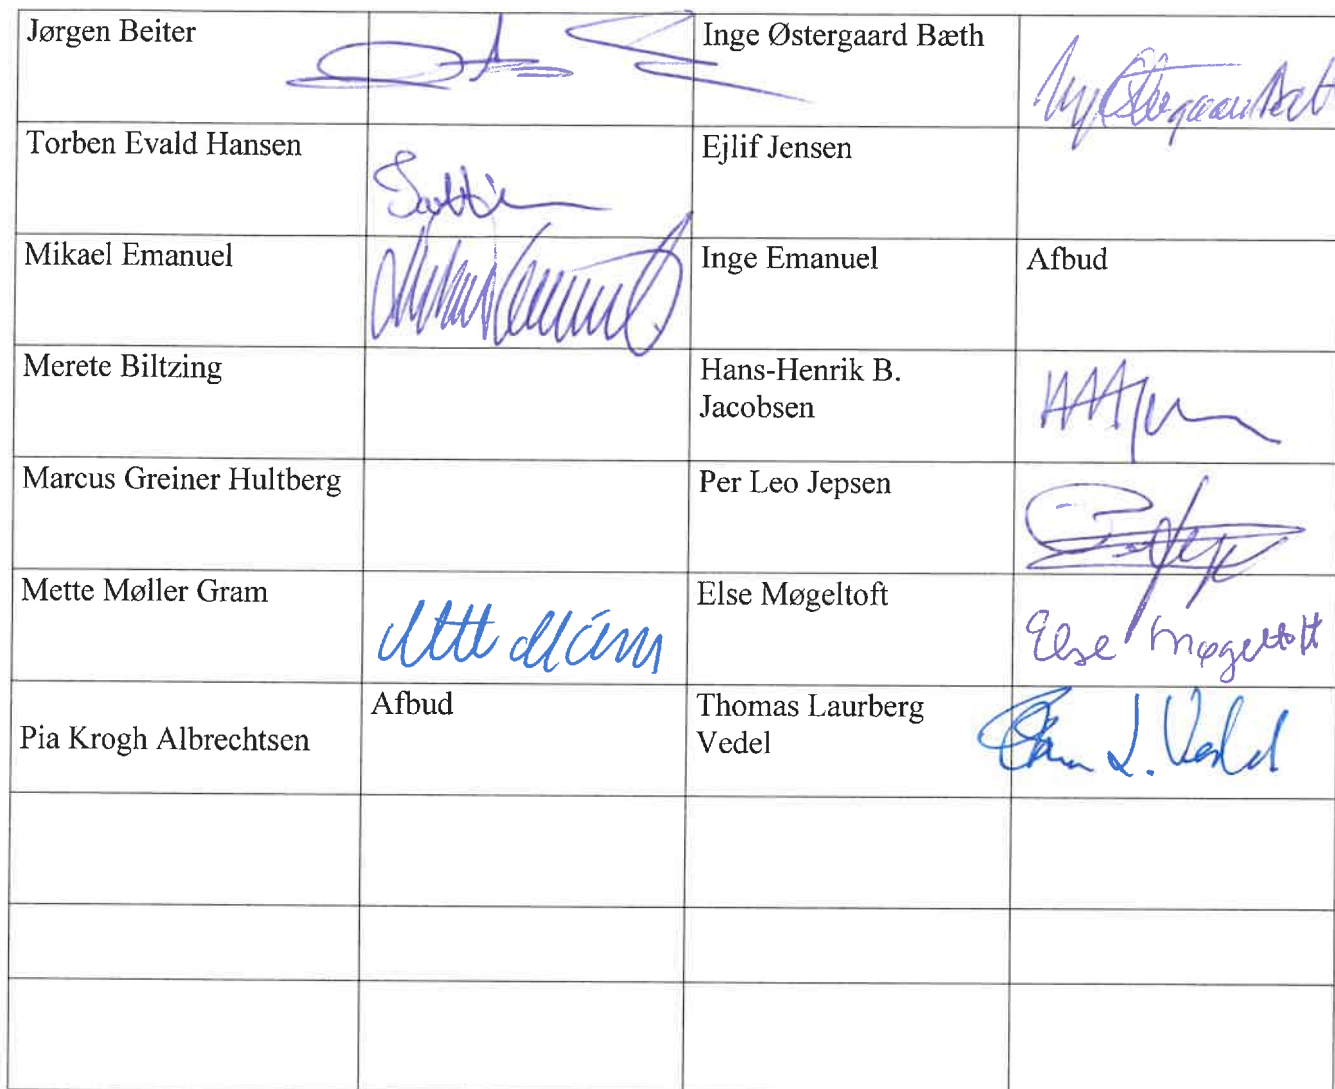 Jørgen Beiter
Inge Østergaard Bæth
Torben Evald Hansen
Ejlif Jensen
Mikael Emanuel
Inge Emanuel
Afbud
Merete Biltzing
Hans-Henrik B.
Jacobsen
Marcus Greiner Hultberg
Per Leo Jepsen
Mette Møller Gram
Else Møgeltoft
Else Møgeltoft
Pia Krogh Albrechtsen
Afbud
Thomas Laurberg
Vedel
L. Vedel